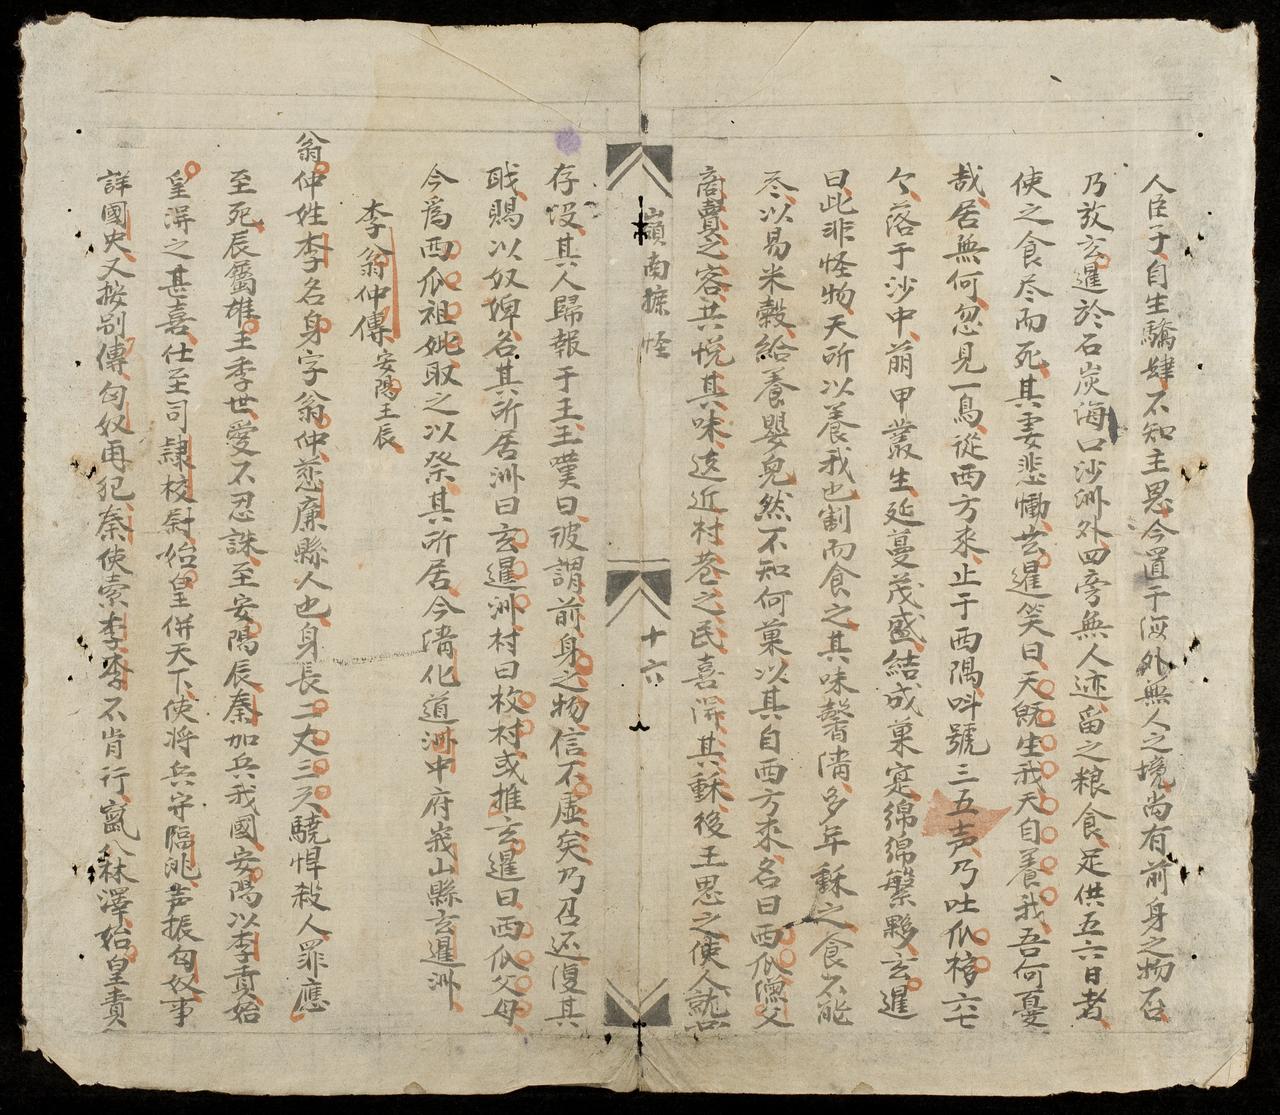 人臣子自生驕肆不知主恩今置于海外無人之境尚有前身之物否
乃放玄暹於石炭海口沙洲外四旁無人迹留之粮食足供五六日者
使之食尽而死其妻悲慟玄暹笑曰天既生我天自養我吾何憂
哉居無何忽見一鳥從西方來止于西隅呌號三五声乃吐瓜核六七
个落于沙中萠甲叢生延蔓茂盛結成菓寔綿綿繁夥玄暹
曰此非怪物天所以養我也割而食之其味馨清多年穌之食不能
尽以易米穀給養嬰兒然不知何菓以其自西方來名曰西瓜漁父
商賣之客共悦其味遠近村巷之民喜済其穌後王思之使人就
嶺南摭怪
十六
存没其人歸報于王王嘆曰彼謂前身之物信不虚矣乃召还復其
職賜以奴婢名其所居洲曰玄暹洲村曰枚村或推玄暹曰西瓜父母
今為西瓜祖妣取之以祭其所居今清化道洲中府峩山縣玄暹洲
李翁仲傳 安陽王辰
翁仲姓李名身字翁仲慈廉縣人也身長二丈三尺驍悍殺人罪應
至死辰屬雄王季世愛不忍誅至安陽辰秦加兵我國安陽以李貢始
皇淂之甚喜仕至司隷校尉始皇併天下使将兵守臨洮声振匈奴事
詳國史又按别傳匈奴再犯秦使索李李不肯行竄八林澤始皇責